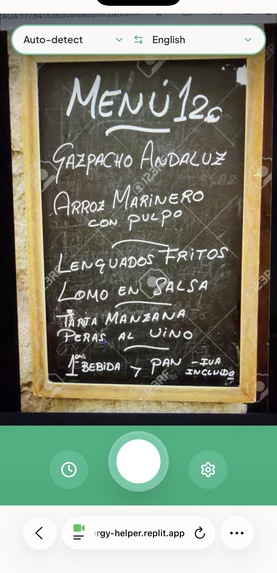 Auto-detect
English
MENÚ 12€
GAZPACHO ANDALUZ
ARROZ MARINERO
CON PULPO
LENGUADOS FRITOS
LOMO EN SALSA
TARTA MANZANA
PERAS AL VINO
1ª BEBIDA Y PAN - IVA
INCLUIDO
123RF
rgy-helper.replit.app